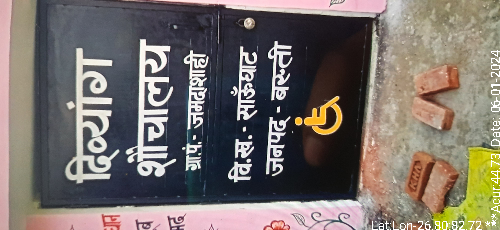 दिव्यांग
शौचालय
ग्रा.पं.- जमदाशाही
वि.ख.- साऊँघाट
जनपद - बस्ती
Lat Lon-26.80,82.72
***Acur 44.73 Date: 06-01-2024